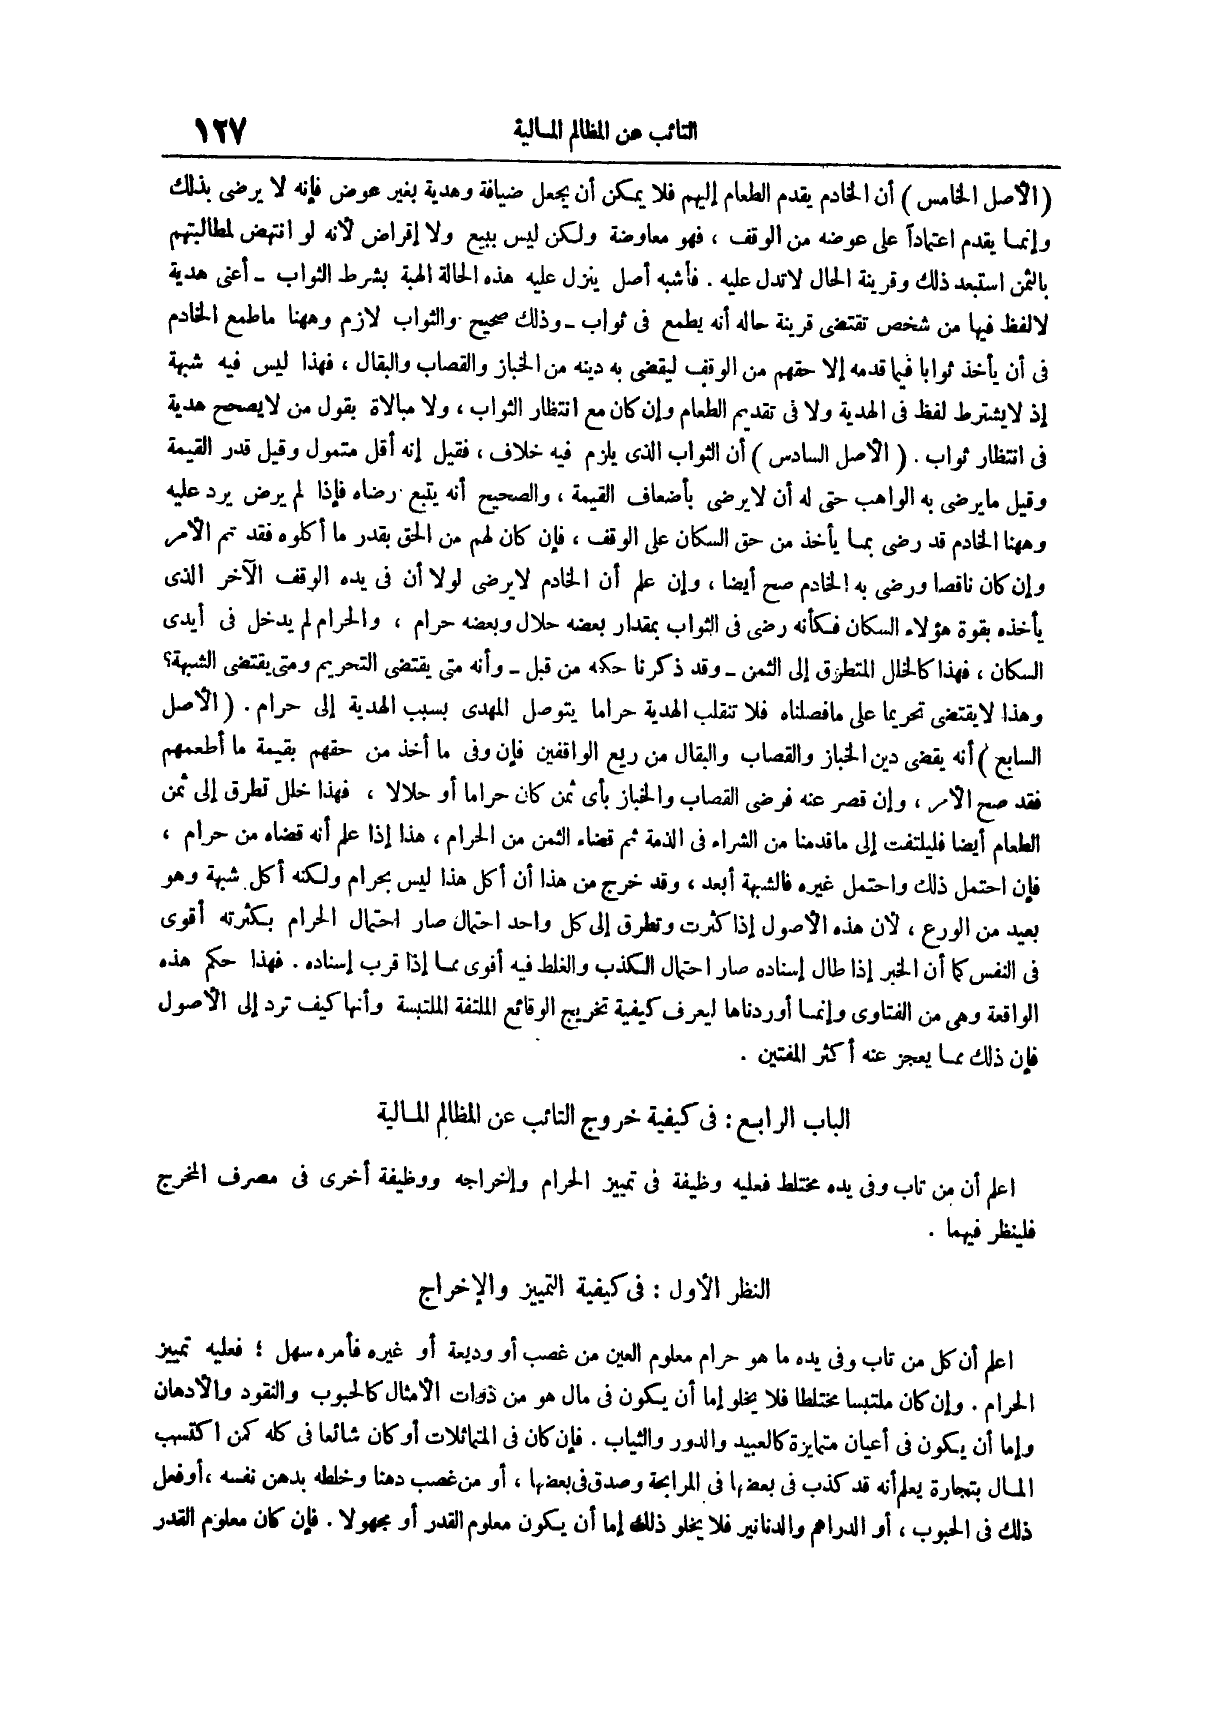 التائب عن المظالم المالية ١٢٧
( الأصل الخامس ) أن الخادم يقدم الطعام إليهم فلا يمكن أن يجعل ضيافة وهدية بغير عوض فإنه لا يرضى بذلك
وإنما يقدم اعتماداً على عوضه من الوقف ، فهو معاوضة ولكن ليس ببيع ولا إقراض لأنه لو انتهض لمطالبتهم
بالثمن استبعد ذلك وقرينة الحال لاتدل عليه . فأشبه أصل ينزل عليه هذه الحالة الهبة بشرط الثواب ـ أعنى هدية
لالفظ فيها من شخص تقتضى قرينة حاله أنه يطمع فى ثواب ـ وذلك صحيح والثواب لازم وههنا ماطمع الخادم
فى أن يأخذ ثوابا فيما قدمه إلا حقهم من الوقف ليقضى به دينه من الخباز والقصاب والبقال ، فهذا ليس فيه شبهة
إذ لايشترط لفظ فى الهدية ولا فى تقديم الطعام وإن كان مع انتظار الثواب ، ولا مبالاة بقول من لايصحح هدية
فى انتظار ثواب . ( الأصل السادس ) أن الثواب الذى يلزم فيه خلاف ، فقيل إنه أقل متمول وقيل قدر القيمة
وقيل مايرضى به الواهب حتى له أن لايرضى بأضعاف القيمة ، والصحيح أنه يتبع رضاه فإذا لم يرض يرد عليه
وههنا الخادم قد رضى بما يأخذ من حق السكان على الوقف ، فإن كان لهم من الحق بقدر ما أكلوه فقد تم الأمر
وإن كان ناقصا ورضى به الخادم صح أيضا ، وإن علم أن الخادم لايرضى لولا أن فى يده الوقف الآخر الذى
يأخذه بقوة هؤلاء السكان فكأنه رضى فى الثواب بمقدار بعضه حلال وبعضه حرام ، والحرام لم يدخل فى أيدى
السكان ، فهذا كالخلل المتطرق إلى الثمن ـ وقد ذكرنا حكمه من قبل ـ وأنه متى يقتضى التحريم ومتى يقتضى الشبهة؟
وهذا لايقتضى تحريما على مافصلناه فلا تنقلب الهدية حراما يتوصل المهدى بسبب الهدية إلى حرام . ( الأصل
السابع ) أنه يقضى دين الخباز والقصاب والبقال من ريع الواقفين فإن وفى ما أخذ من حقهم بقيمة ما أطعمهم
فقد صح الأمر ، وإن قصر عنه فرضى القصاب والخباز بأى ثمن كان حراما أو حلالا ، فهذا خلل تطرق إلى ثمن
الطعام أيضا فليلتفت إلى ماقدمنا من الشراء فى الذمة ثم قضاء الثمن من الحرام ، هذا إذا علم أنه قضاه من حرام ،
فإن احتمل ذلك واحتمل غيره فالشبهة أبعد ، وقد خرج من هذا أن أكل هذا ليس بحرام ولكنه أكل شبهة وهو
بعيد من الورع ، لأن هذه الأصول إذا كثرت وتطرق إلى كل واحد احتمال صار احتمال الحرام بكثرته أقوى
فى النفس كما أن الخبر إذا طال إسناده صار احتمال الكذب والغلط فيه أقوى مما إذا قرب إسناده . فهذا حكم هذه
الواقعة وهى من الفتاوى وإنما أوردناها ليعرف كيفية تخريج الوقائع الملتفة الملتبسة وأنها كيف ترد إلى الأصول
فإن ذلك مما يعجز عنه أكثر المفتين .
الباب الرابع : فى كيفية خروج التائب عن المظالم المالية
اعلم أن من تاب وفى يده مختلط فعليه وظيفة فى تمييز الحرام وإخراجه ووظيفة أخرى فى مصرف المخرج
فلينظر فيهما .
النظر الأول : فى كيفية التمييز والإخراج
اعلم أن كل من تاب وفى يده ما هو حرام معلوم العين من غصب أو وديعة أو غيره فأمره سهل ؛ فعليه تمييز
الحرام . وإن كان ملتبسا مختلطا فلا يخلو إما أن يكون فى مال هو من ذوات الأمثال كالحبوب والنقود والأدهان
وإما أن يكون فى أعيان متمايزة كالعبيد والدور والثياب . فإن كان فى المتماثلات أو كان شائعا فى كله كمن اكتسب
المال بتجارة يعلم أنه قد كذب فى بعضها فى المرابحة وصدق فى بعضها ، أو من غصب دهنا وخلطه بدهن نفسه ، أو فعل
ذلك فى الحبوب ، أو الدراهم والدنانير فلا يخلو ذلك إما أن يكون معلوم القدر أو مجهولا . فإن كان معلوم القدر